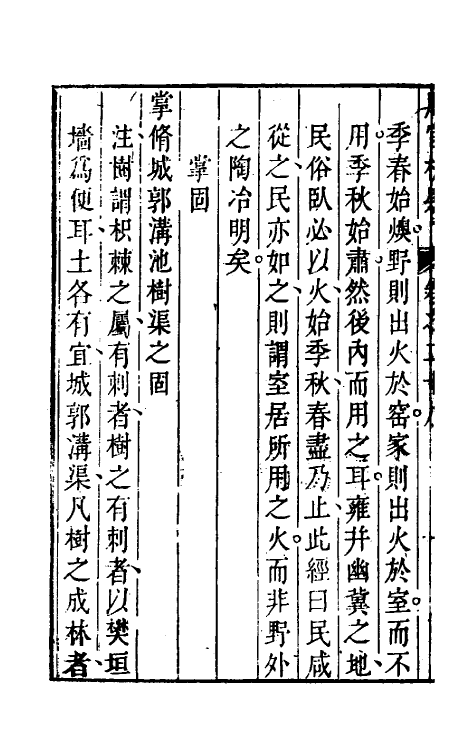 季春始燠野則出火於窑家則出火於室而不
用季秋始肅然後內而用之耳雍并幽冀之地
民俗臥必以火始季秋春盡乃止此經曰民咸
從之民亦如之則謂室居所用之火而非野外
之陶冶明矣
掌固
掌脩城郭溝池樹渠之固
注樹謂枳棘之屬有刺者樹之有刺者以樊垣
墻爲便耳土各有宜城郭溝渠凡樹之成林者